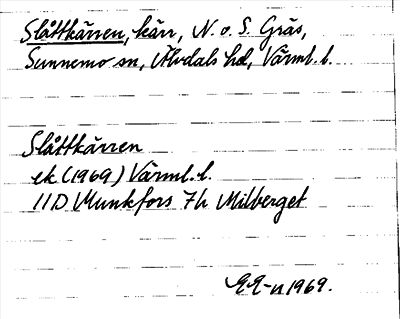 Slåttkärren, kärr, N. o. S. Gräs,
Sunnemo sn, Älvdals hd, Värml. l.
Slåttkärren
ek (1969) Värml. l.
11D Munkfors 7h Milberget
1969.